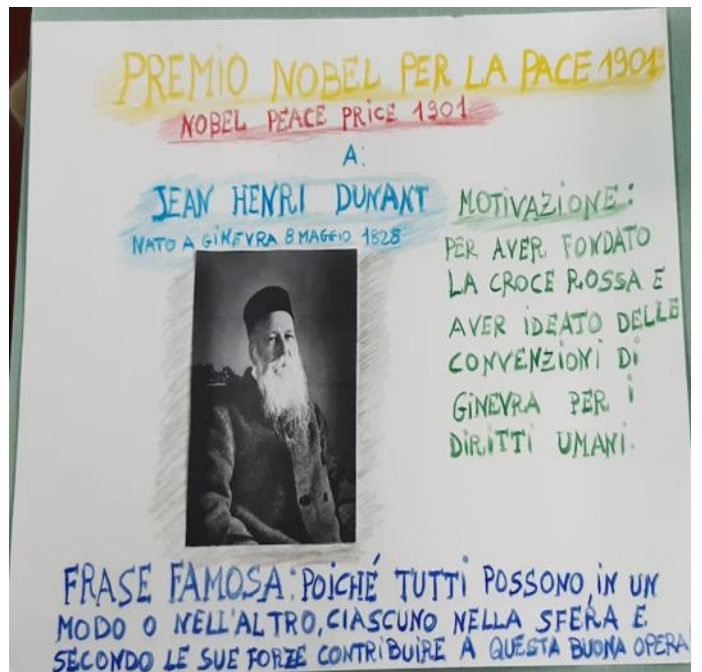 PREMIO NOBEL PER LA PACE 1901
NOBEL PEACE PRICE 1901
A:
JEAN HENRI DUNANT
NATO A GINEVRA 8 MAGGIO 1828
MOTIVAZIONE:
PER AVER FONDATO
LA CROCE ROSSA E
AVER IDEATO DELLE
CONVENZIONI DI
GINEVRA PER I
DIRITTI UMANI.
FRASE FAMOSA: POICHÉ TUTTI POSSONO, IN UN
MODO O NELL'ALTRO, CIASCUNO NELLA SFERA E
SECONDO LE SUE FORZE CONTRIBUIRE A QUESTA BUONA OPERA